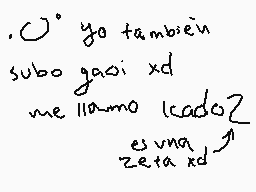 .O° yo también
subo gaoi xd
me llamo Icado Z
es una
zeta xd